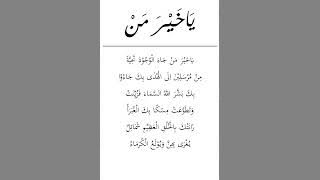 يَاخَيْرَ مَنْ
يَاخَيْرَ مَنْ جَاءَ الْوُجُوْدَ تَحِيَّةً
مِنْ مُرْسَلِيْنَ اِلَى الْهُدٰى بِكَ جَاءُوْا
بِكَ بَشَّرَ اللهُ السَّمَاءَ فَزُيِّنَتْ
وَتَضَوَّعَتْ مِسْكًا بِكَ الْغَبْرَاءُ
زَانَتْكَ بِالْخُلُقِ الْعَظِيْمِ شَمَائِلٌ
يُغْرٰى بِهِنَّ وَيُوْلَعُ الْكُرَمَاءُ